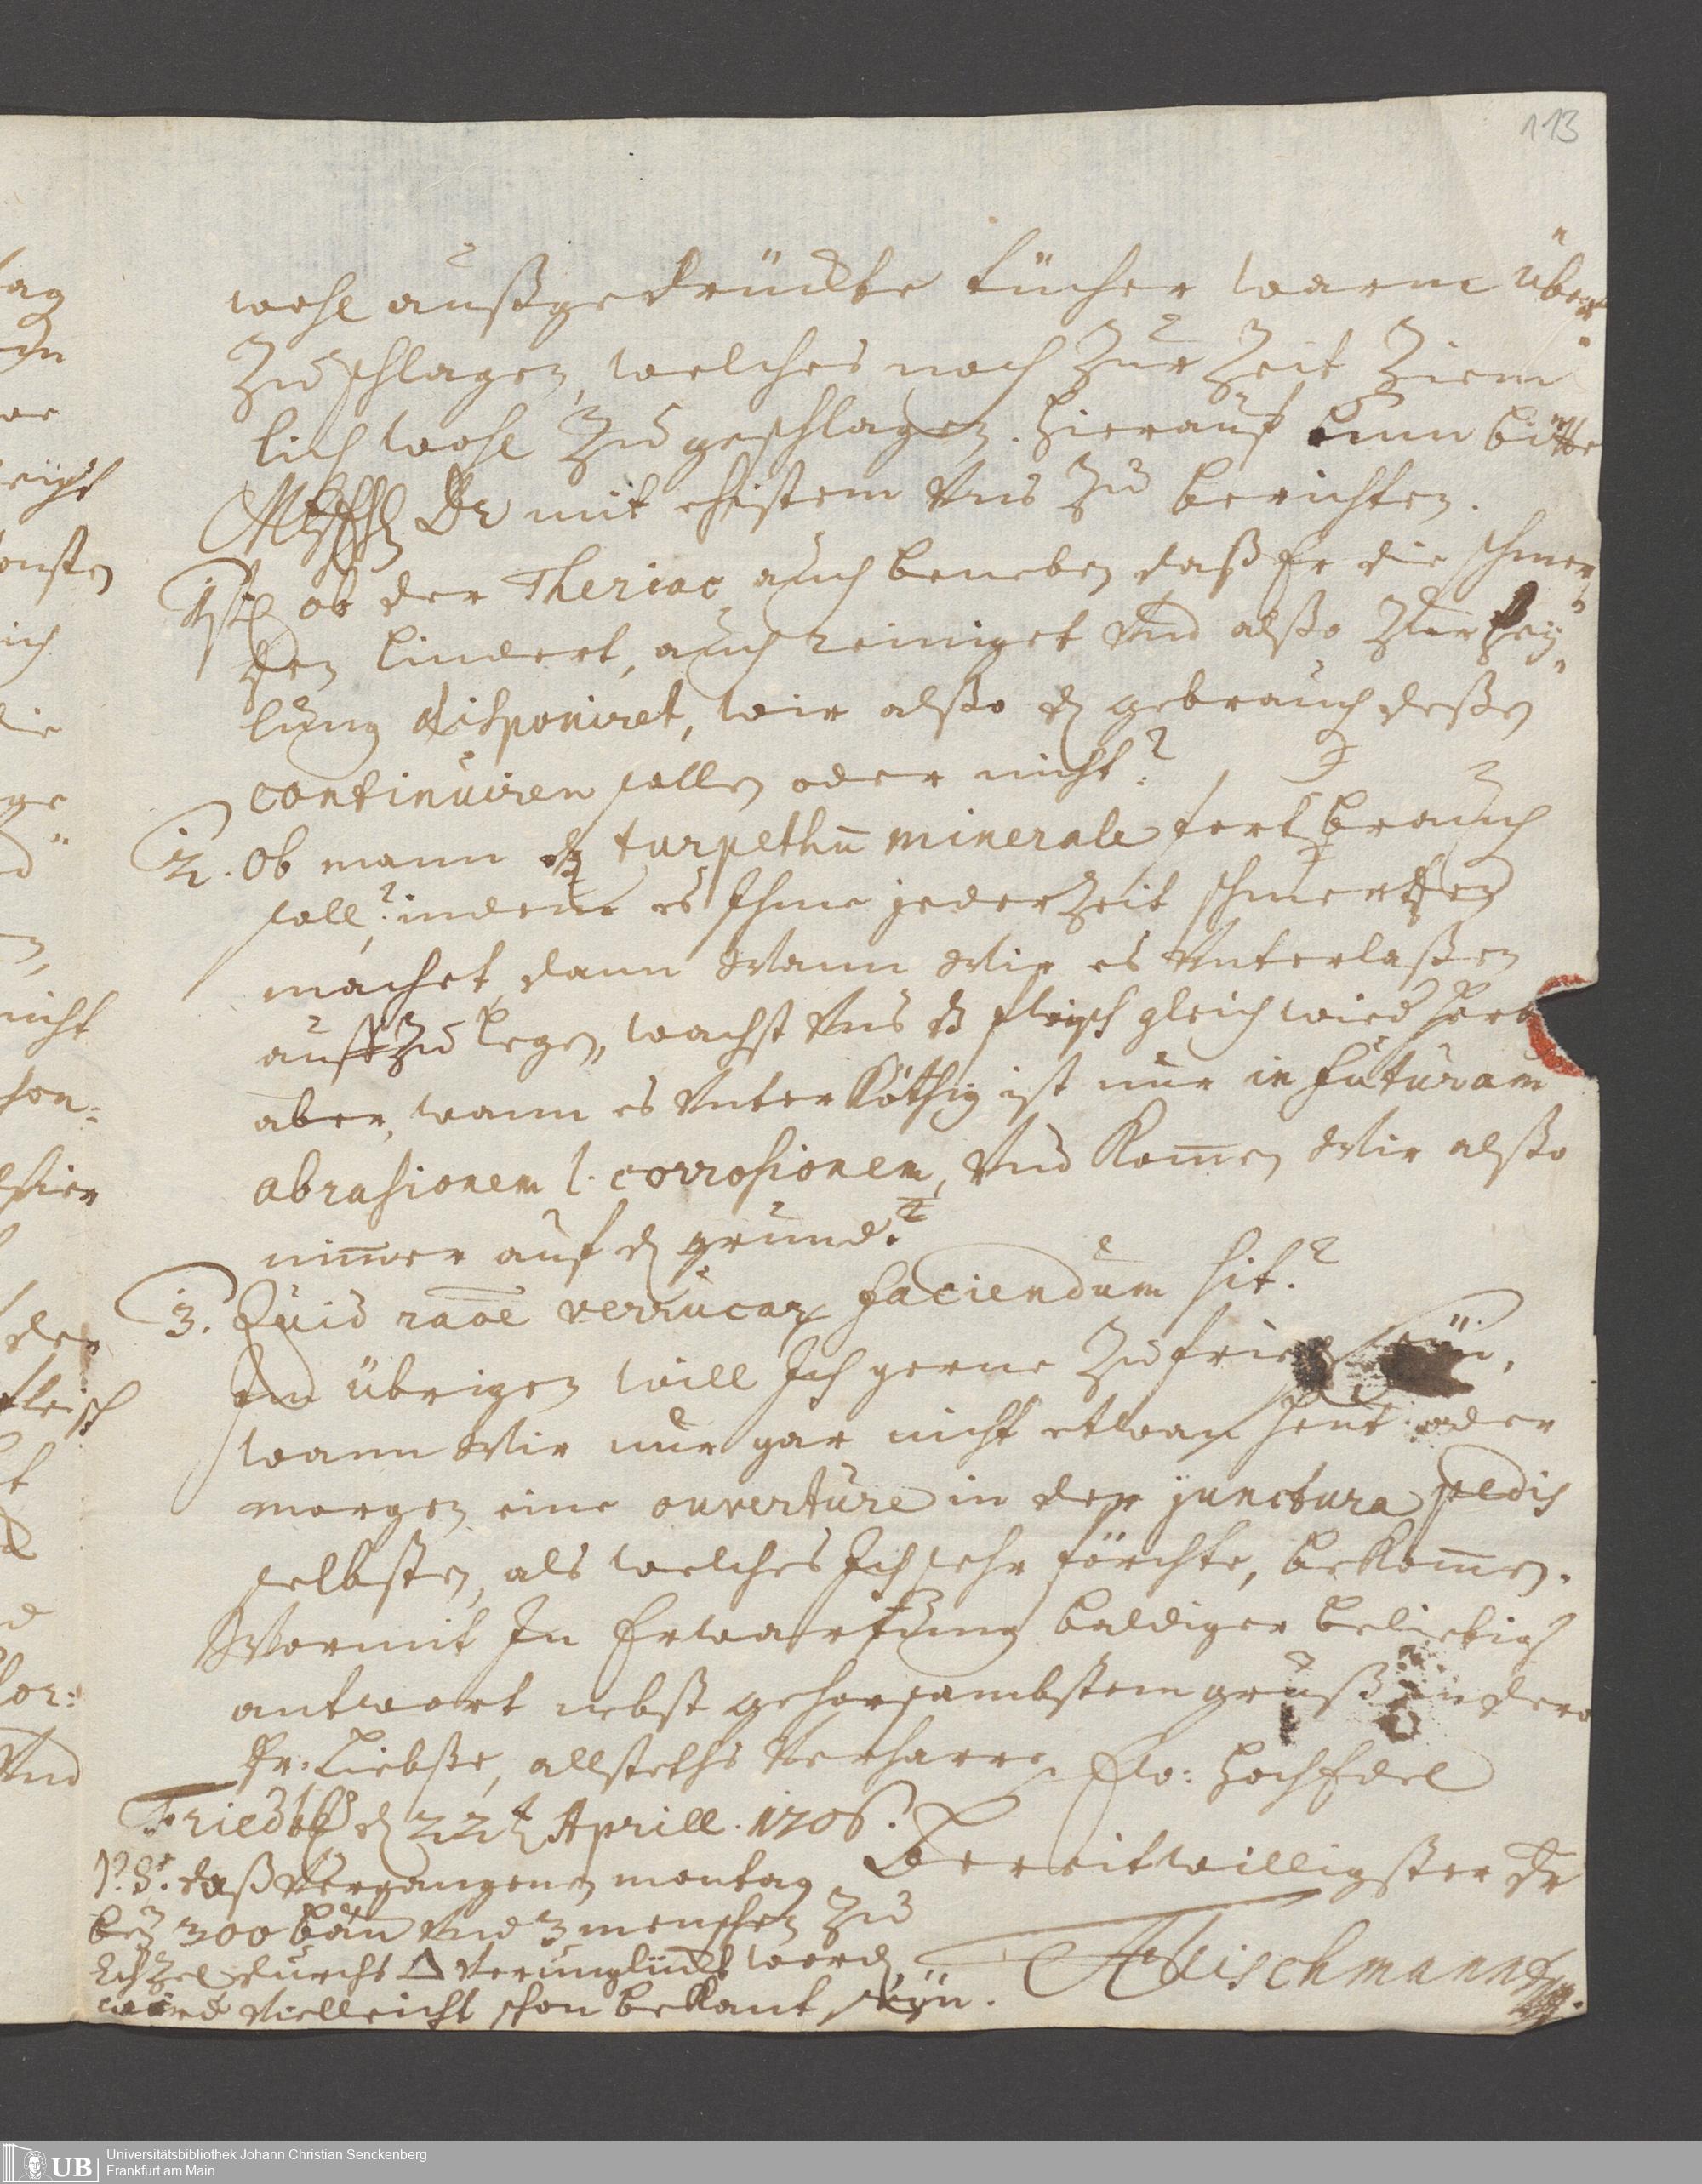 113
wohl außgedrückte tücher warm über
zuschlagen, welches noch zur Zeit Ziem
lich wohl zu geschlagen. Hierauf nun bitte
Dr mit ehistem Uns zu berichten.
ob der Theriac, auch beneben daß Er die schmer
tzen lindert, auch reiniget und alßo zur hey
lung disponiret, wir alßo den gebrauch deßen
continuiren sollen oder nicht?
2. Ob mann dz turpethū minerale fort brauch
soll? indeme es Ihme jederzeit schmertzen
machet, dann Wann Wir es Unterlaßen
auffzulegen, wachst Uns dz fleisch gleich wied
aber, wann es Unterköthig ist nur in futuram
abrasionem l. corrosionem, Und Kom̄en Wir alßo
nim̄er auf den grund?
3. Quid raōe verrucar faciendum sit?
Im übrigen will Ich gerne zufrieden seÿn,
wann Wir nur gar nicht etwan heut oder
morgen eine ouverture in der junctura pedis
selbsten, als welches Ich sehr förchte, bekom̄en.
Wormit In Erwartung baldiger beliebig
antwort nebst gehorsambstem gruß an dero
Fr: Liebste, allstethß Verharre Ew: HochEdel
Friedb d 22t Aprill. 1706.
Bereitwilligster Dr
P.S. daß Vergangenen montag
beÿ 300 bäu Und 3 menschen zu
Echzel durchs △ Verunglückt word,
wird Vielleicht schon bekant seÿn.
Fleischmann
tag
nicht
der
fleisch
Und
UB
Universitätsbibliothek Johann Christian Senckenberg
Frankfurt am Main